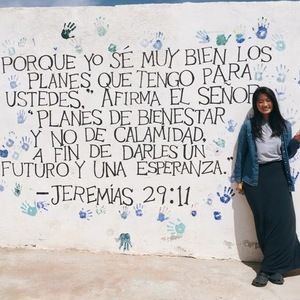 PORQUE YO SÉ MUY BIEN LOS
PLANES QUE TENGO PARA
USTEDES," AFIRMA EL SEÑOR
"PLANES DE BIENESTAR
Y NO DE CALAMIDAD,
A FIN DE DARLES UN
FUTURO Y UNA ESPERANZA."
-JEREMÍAS 29:11